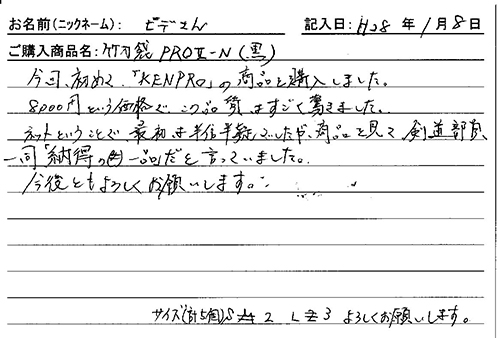 お名前(ニックネーム): ビデさん 記入日: H28年1月8日
ご購入商品名: 竹刀袋 PROⅡ-N (黒)
今回、初めて、「KENPRO」の商品を購入しました。
8000円という価格で、この品質はすごく驚きました。
ネットということで最初は半信半疑でしたが、商品を見て剣道部員
一同「納得の一品」だと言っていました。
今後ともよろしくお願いします。
サイズ(計5個)S 2 L 3 よろしくお願いします。